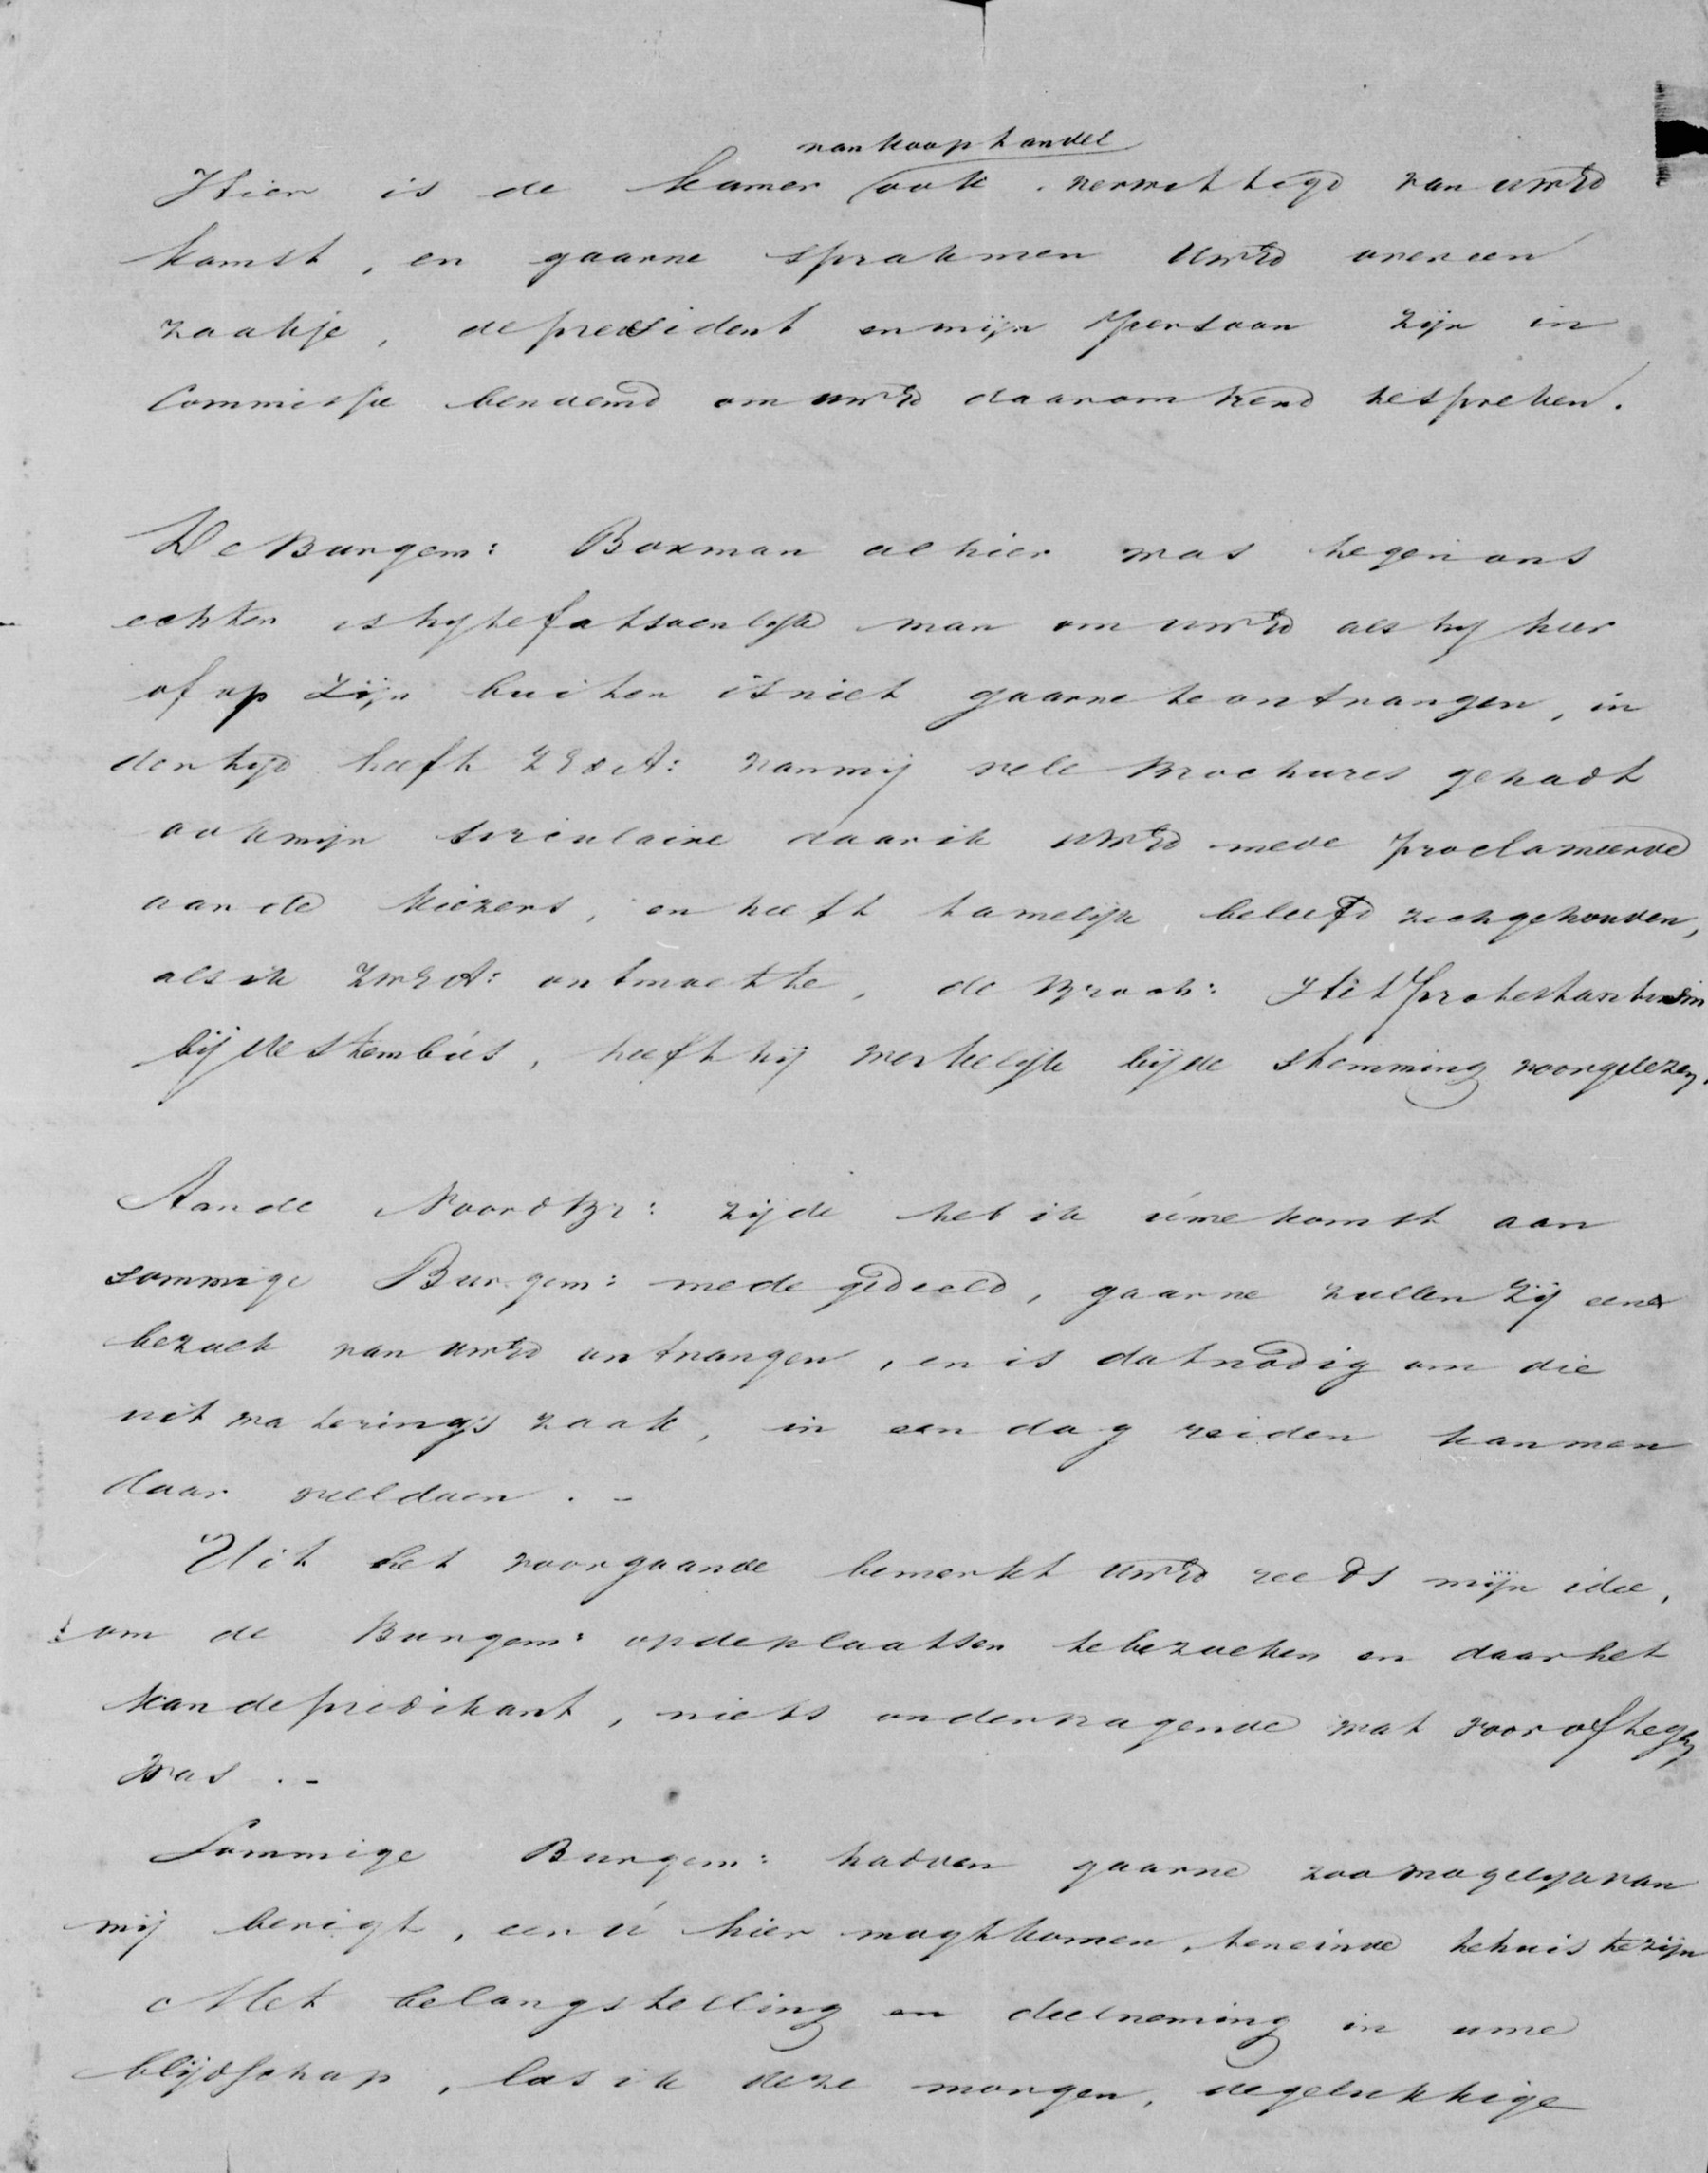 van koophandel
Hier is de kamer ook verwittigd van UwEd
komst, en gaarne sprak men UwEd over een
zaakje, de president en mijn persoon zijn in
Commissie benoemd om UwEd daaromtrend te spreken.
De Burgem: Boxman alhier was tegen ons
echter is hij te fatsoenlijk man om UwEd als hij hier
of op zijn buiten is niet gaarne te ontvangen, in
der tijd heeft ZEdA: van mij vele Brochures gehadt
ook mijn circulaire daar ik UwEd mede proclameerde
aan de kiezers, en heeft tamelijk beleefd zich gehouden,
als ik ZWEdA: ontmoette, de Broch: Het Protestantism
bij de stembús, heeft hij werkelijk bij de stemming voorgelezen,
Aan de NoordBr: zijde heb ik úwe komst aan
sommige Burgem: mede gedeeld, gaarne zullen zij een
bezoek van UwEd ontvangen, en is dat nodig om die
uitwateringszaak, in een dag reiden kan men
daar veel doen. -
Uit het voorgaande bemerkt UwEd reeds mijn idee,
om de Burgem: op de plaatsen te bezoeken en daar het
kan de predikant, niets ondervragende wat voor of tegen
was. -
Sommige Burgem: hadden gaarne zoo mogelijk van
mij berigt, eer ú hier mogt komen, ten einde te huis te zijn
Met belangstelling en deelneming in uwe
blijdschap, las ik deze morgen, de gelukkige